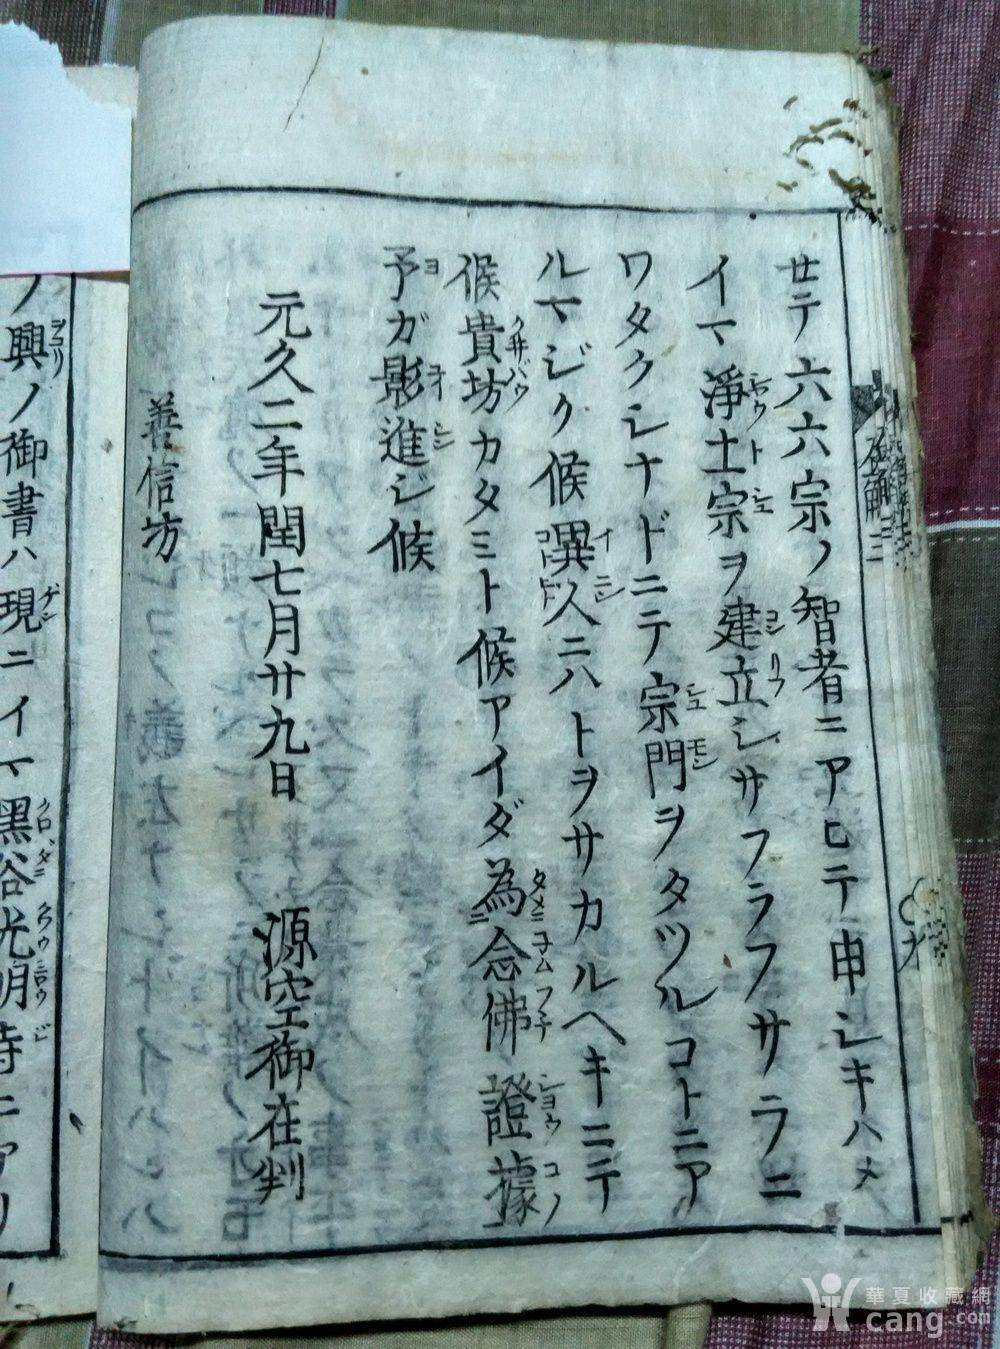 廿テ六六宗ノ智者ニアヒテ申シキハメ
イマ淨土宗ヲ建立シサフラフサラニ
ワタクシナドニテ宗門ヲタツルコトニア
ルマジク候撰人ニハトヲサカルヘキニテ
候貴坊カタミト候アイダ為念佛證據
予ガ影進ジ候
元久二年閏七月廿九日 源空御在判
善信坊
ノ興ノ御書ハ現ニイマ黑谷光明寺ニアリ
華夏收藏網
cang.com